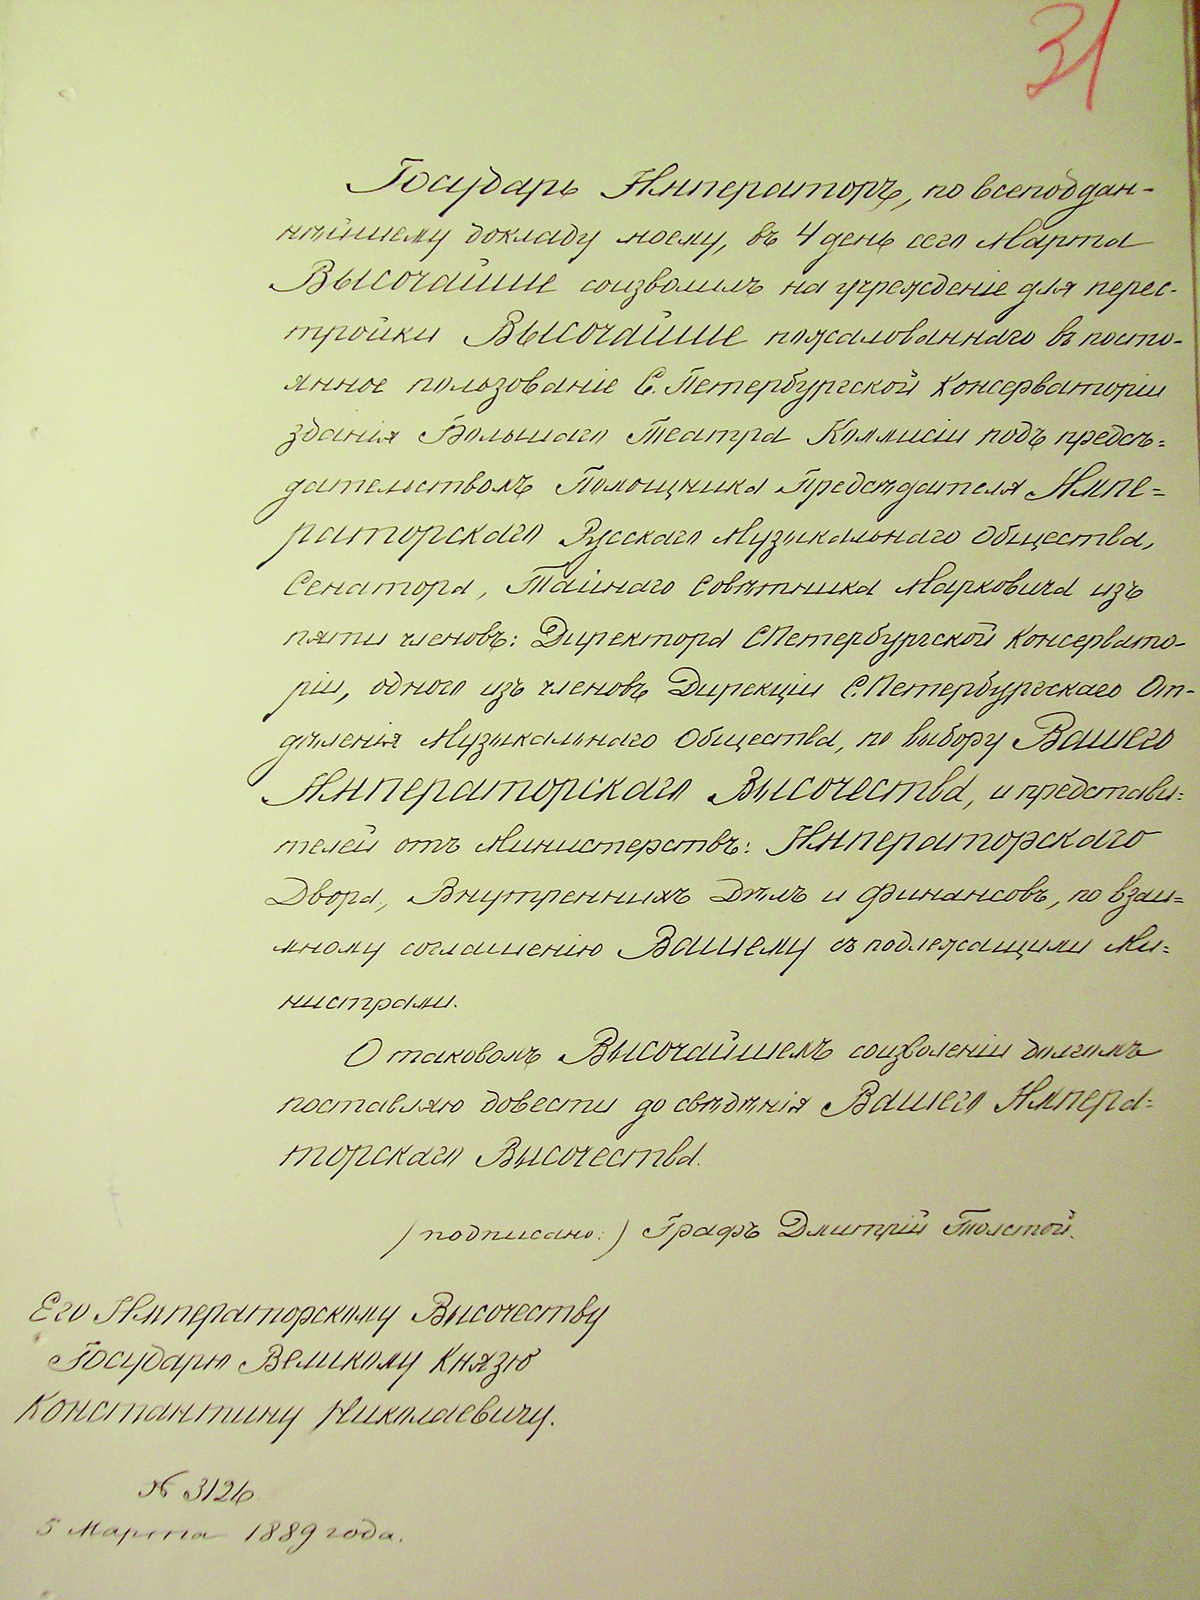 31
Государь Императоръ, по всеподдан-
нѣйшему докладу моему, въ 4 день сего Марта
Высочайше соизволилъ на учрежденіе для перес-
тройки Высочайше пожалованнаго въ посто-
янное пользованіе С. Петербургской Консерваторіи
зданія Большаго Театра Коммисіи подъ предсѣ=
дательствомъ Помощника Предсѣдателя Импе=
раторскаго Русскаго Музыкальнаго Общества,
Сенатора, Тайнаго Совѣтника Марковича изъ
пяти членовъ: Директора СПетербургской Консервато-
ріи, одного изъ членовъ Дирекціи С.Петербургскаго От-
дѣленія Музыкальнаго Общества, по выбору Вашего
Императорскаго Высочества, и представи=
телей отъ Министерствъ: Императорскаго
Двора, Внутреннихъ Дѣлъ и Финансовъ, по взаи=
мному соглашенію Вашему съ подлежащими Ми=
нистрами.
О таковомъ Высочайшемъ соизволеніи долгомъ
поставляю довести до свѣдѣнія Вашего Импера=
торскаго Высочества.
(подписано:) Графъ Дмитрій Толстой.
Его Императорскому Высочеству
Государю Великому Князю
Константину Николаевичу.
№ 3126
5 Марта 1889 года.